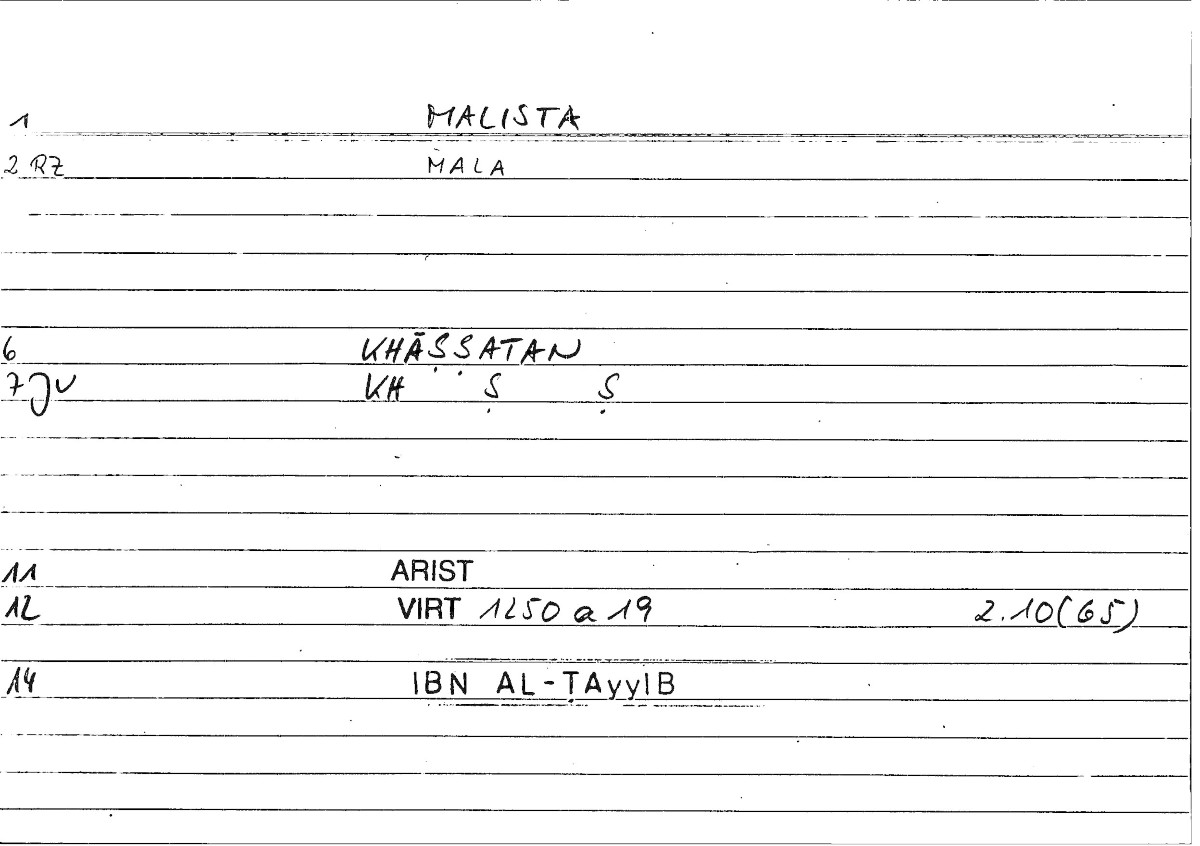 1 MALISTA
2 RZ MALA
6 KHĀṢṢATAN
7 JV KH Ṣ Ṣ
11 ARIST
12 VIRT 1250 a 19 2.10(65)
14 IBN AL-ṬAyyIB